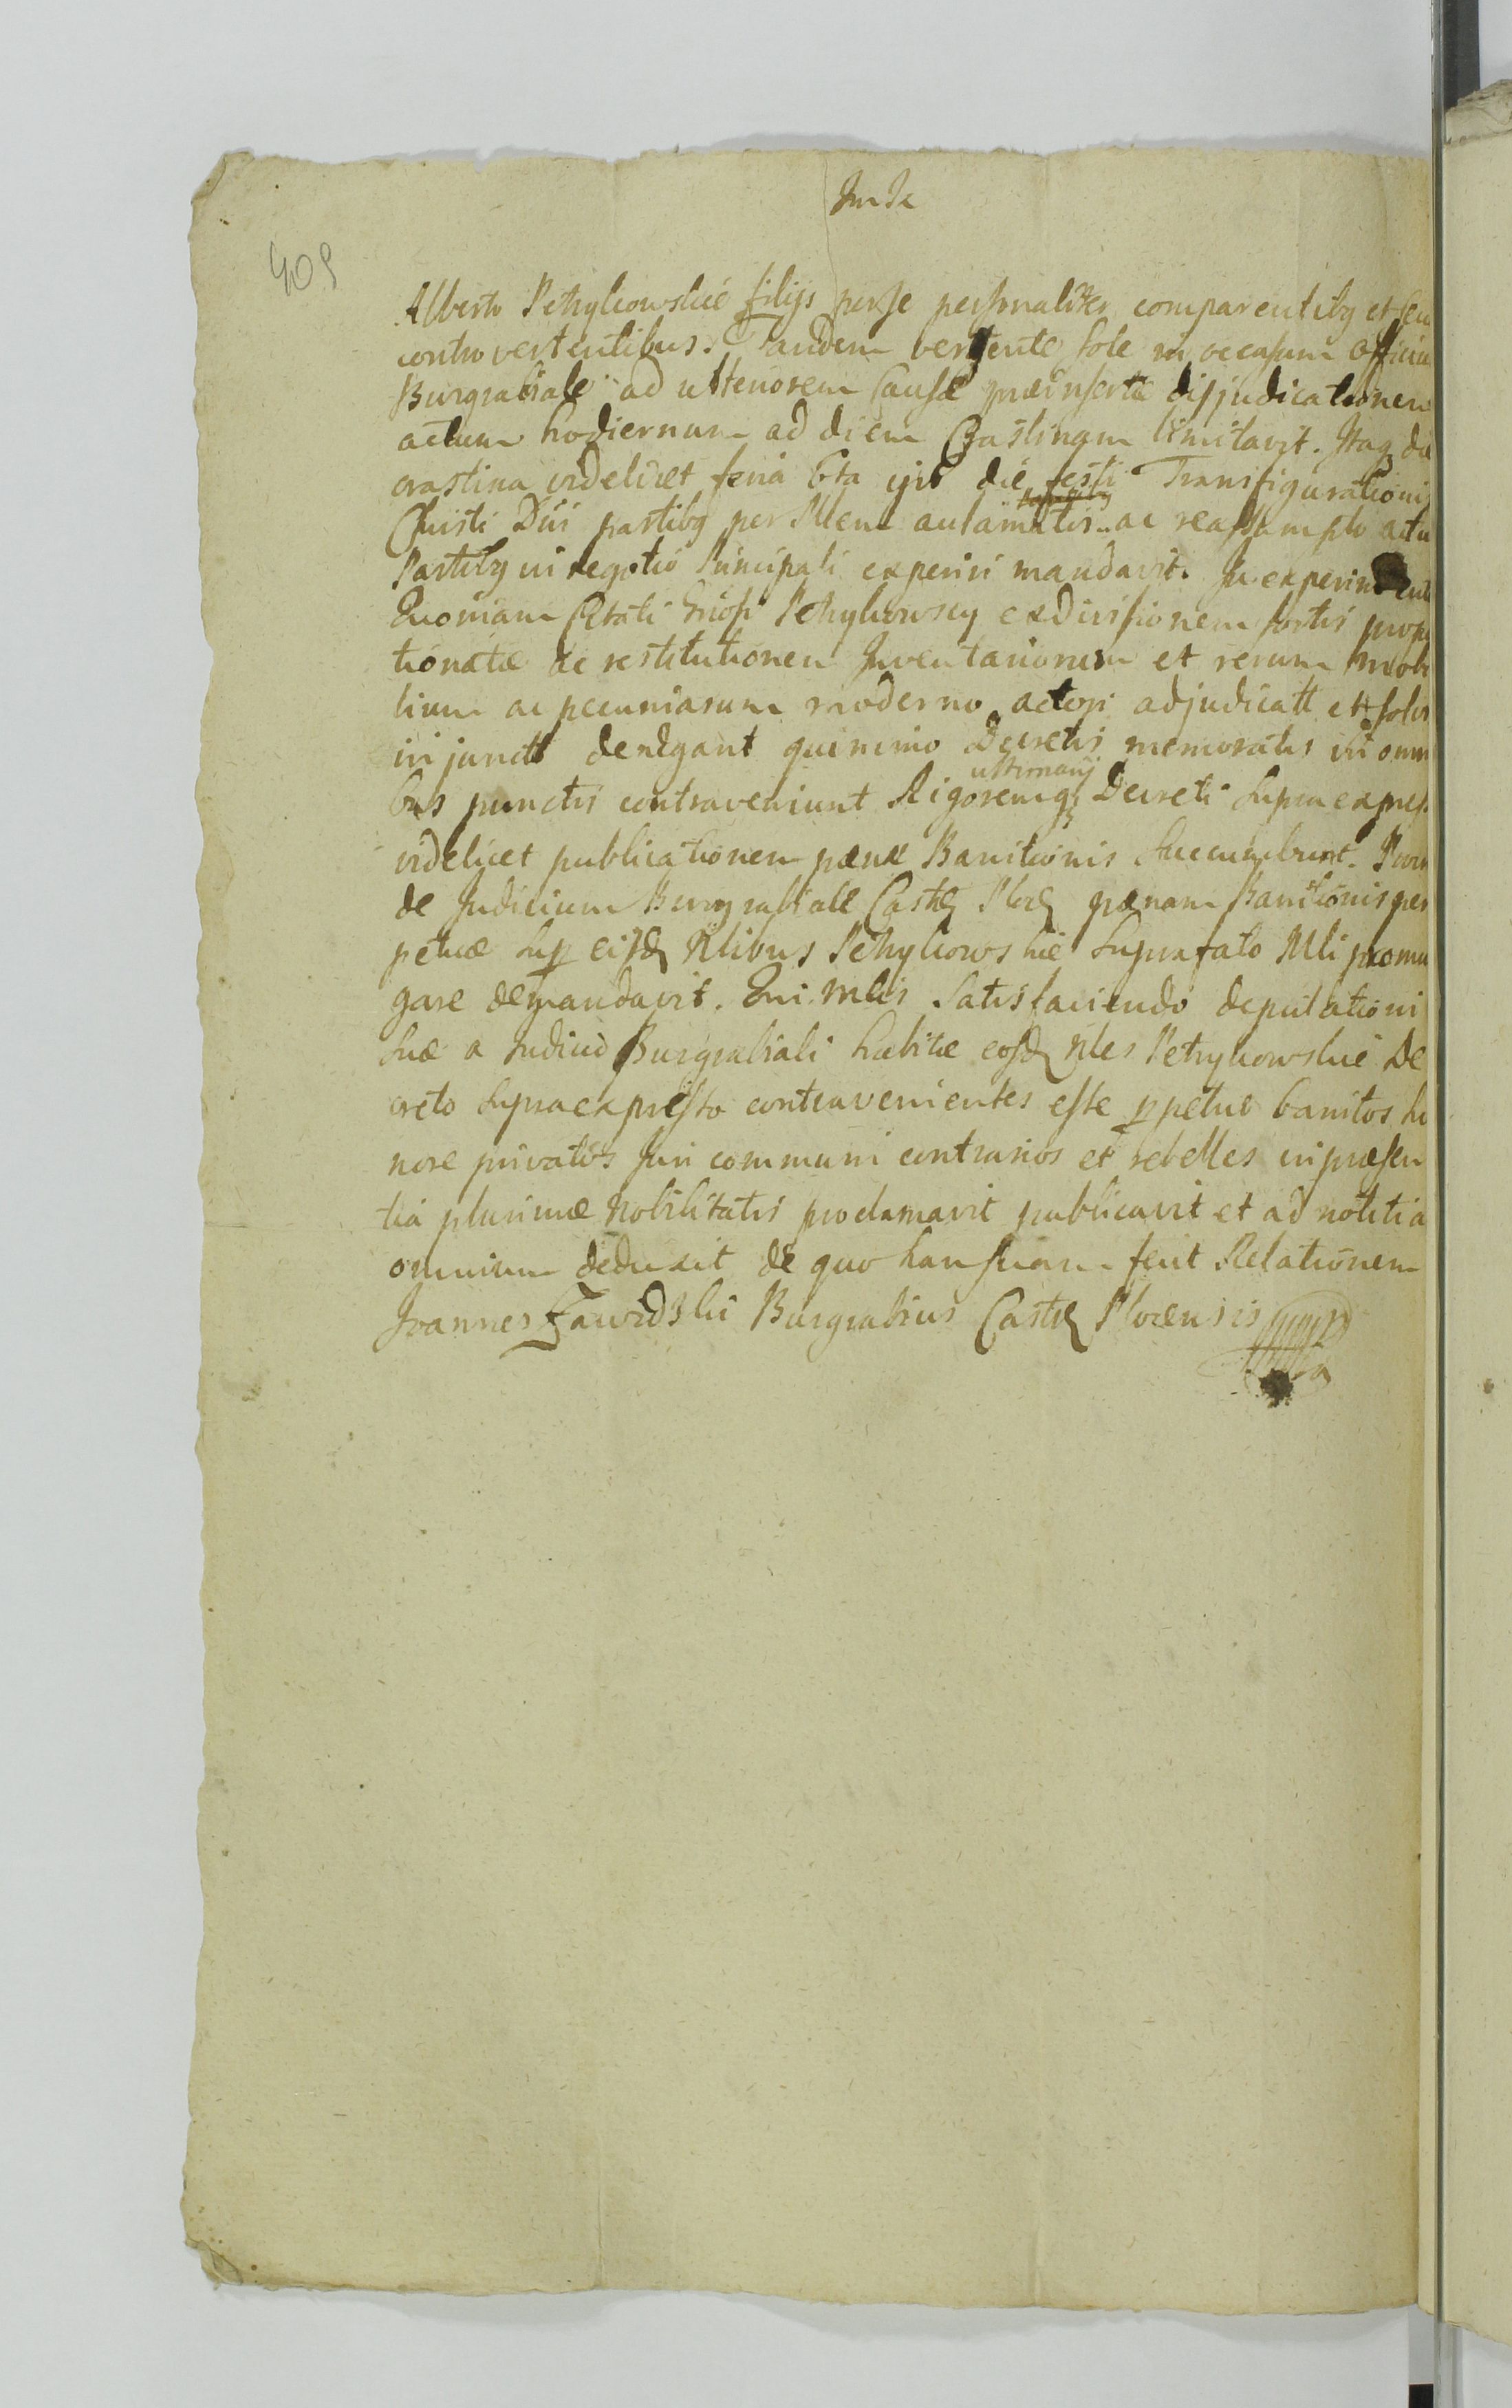 409
Alberto Petrykowskie filijs per se personaliter comparentibq et
controvertentibus. Tandem vergente sole in occasum officiu
Burgrabiale ad ulteriorem Causæ præinsertæ disjudicationem
actum hodiernum ad diem Crastinam limitavit. Itaq die
crastina videlicet feria 6ta ipso die festi Transfigurationis
Christi Dni partibq per Mlem acclamatis ac reassumpto actu
Partibq in negotio Principali experiri mandavit. In
Quoniam Citati Petrykowscy exdivisionem sortis propo
tionatæ ac restitutionem Inventariorum et rerum mobi
lium ac pecuniarum moderno actori adjudicatt et
injunctt denegant quinimo Decretis memoratis in omni
bus punctis contraveniunt Rigoremq ultimarij Decreti supraexpres
videlicet publicationem pænæ Banitionis succumbunt. Proin
de Judicium Burgrabiale Castr Ploc pænam Banitionis per
petuæ sup eisd Nlibus Petrykowskie suprafato Mli promu
gare demandavit. Qui Mlis satisfaciendo deputationi
suæ a Judicio Burgrabiali habitæ eosd Nles Petrykowskie De
creto supraexpresso contravenientes esse ppetuo banitos ho
nore privatos Juri communi contrarios et rebelles in præsen
tia plurimæ Nobilitatis proclamavit publicavit et ad notitia
omnium deduxit de quo hanc suam fecit Relationem
Joannes Zawidzki Burgrabius Castr Plocensis